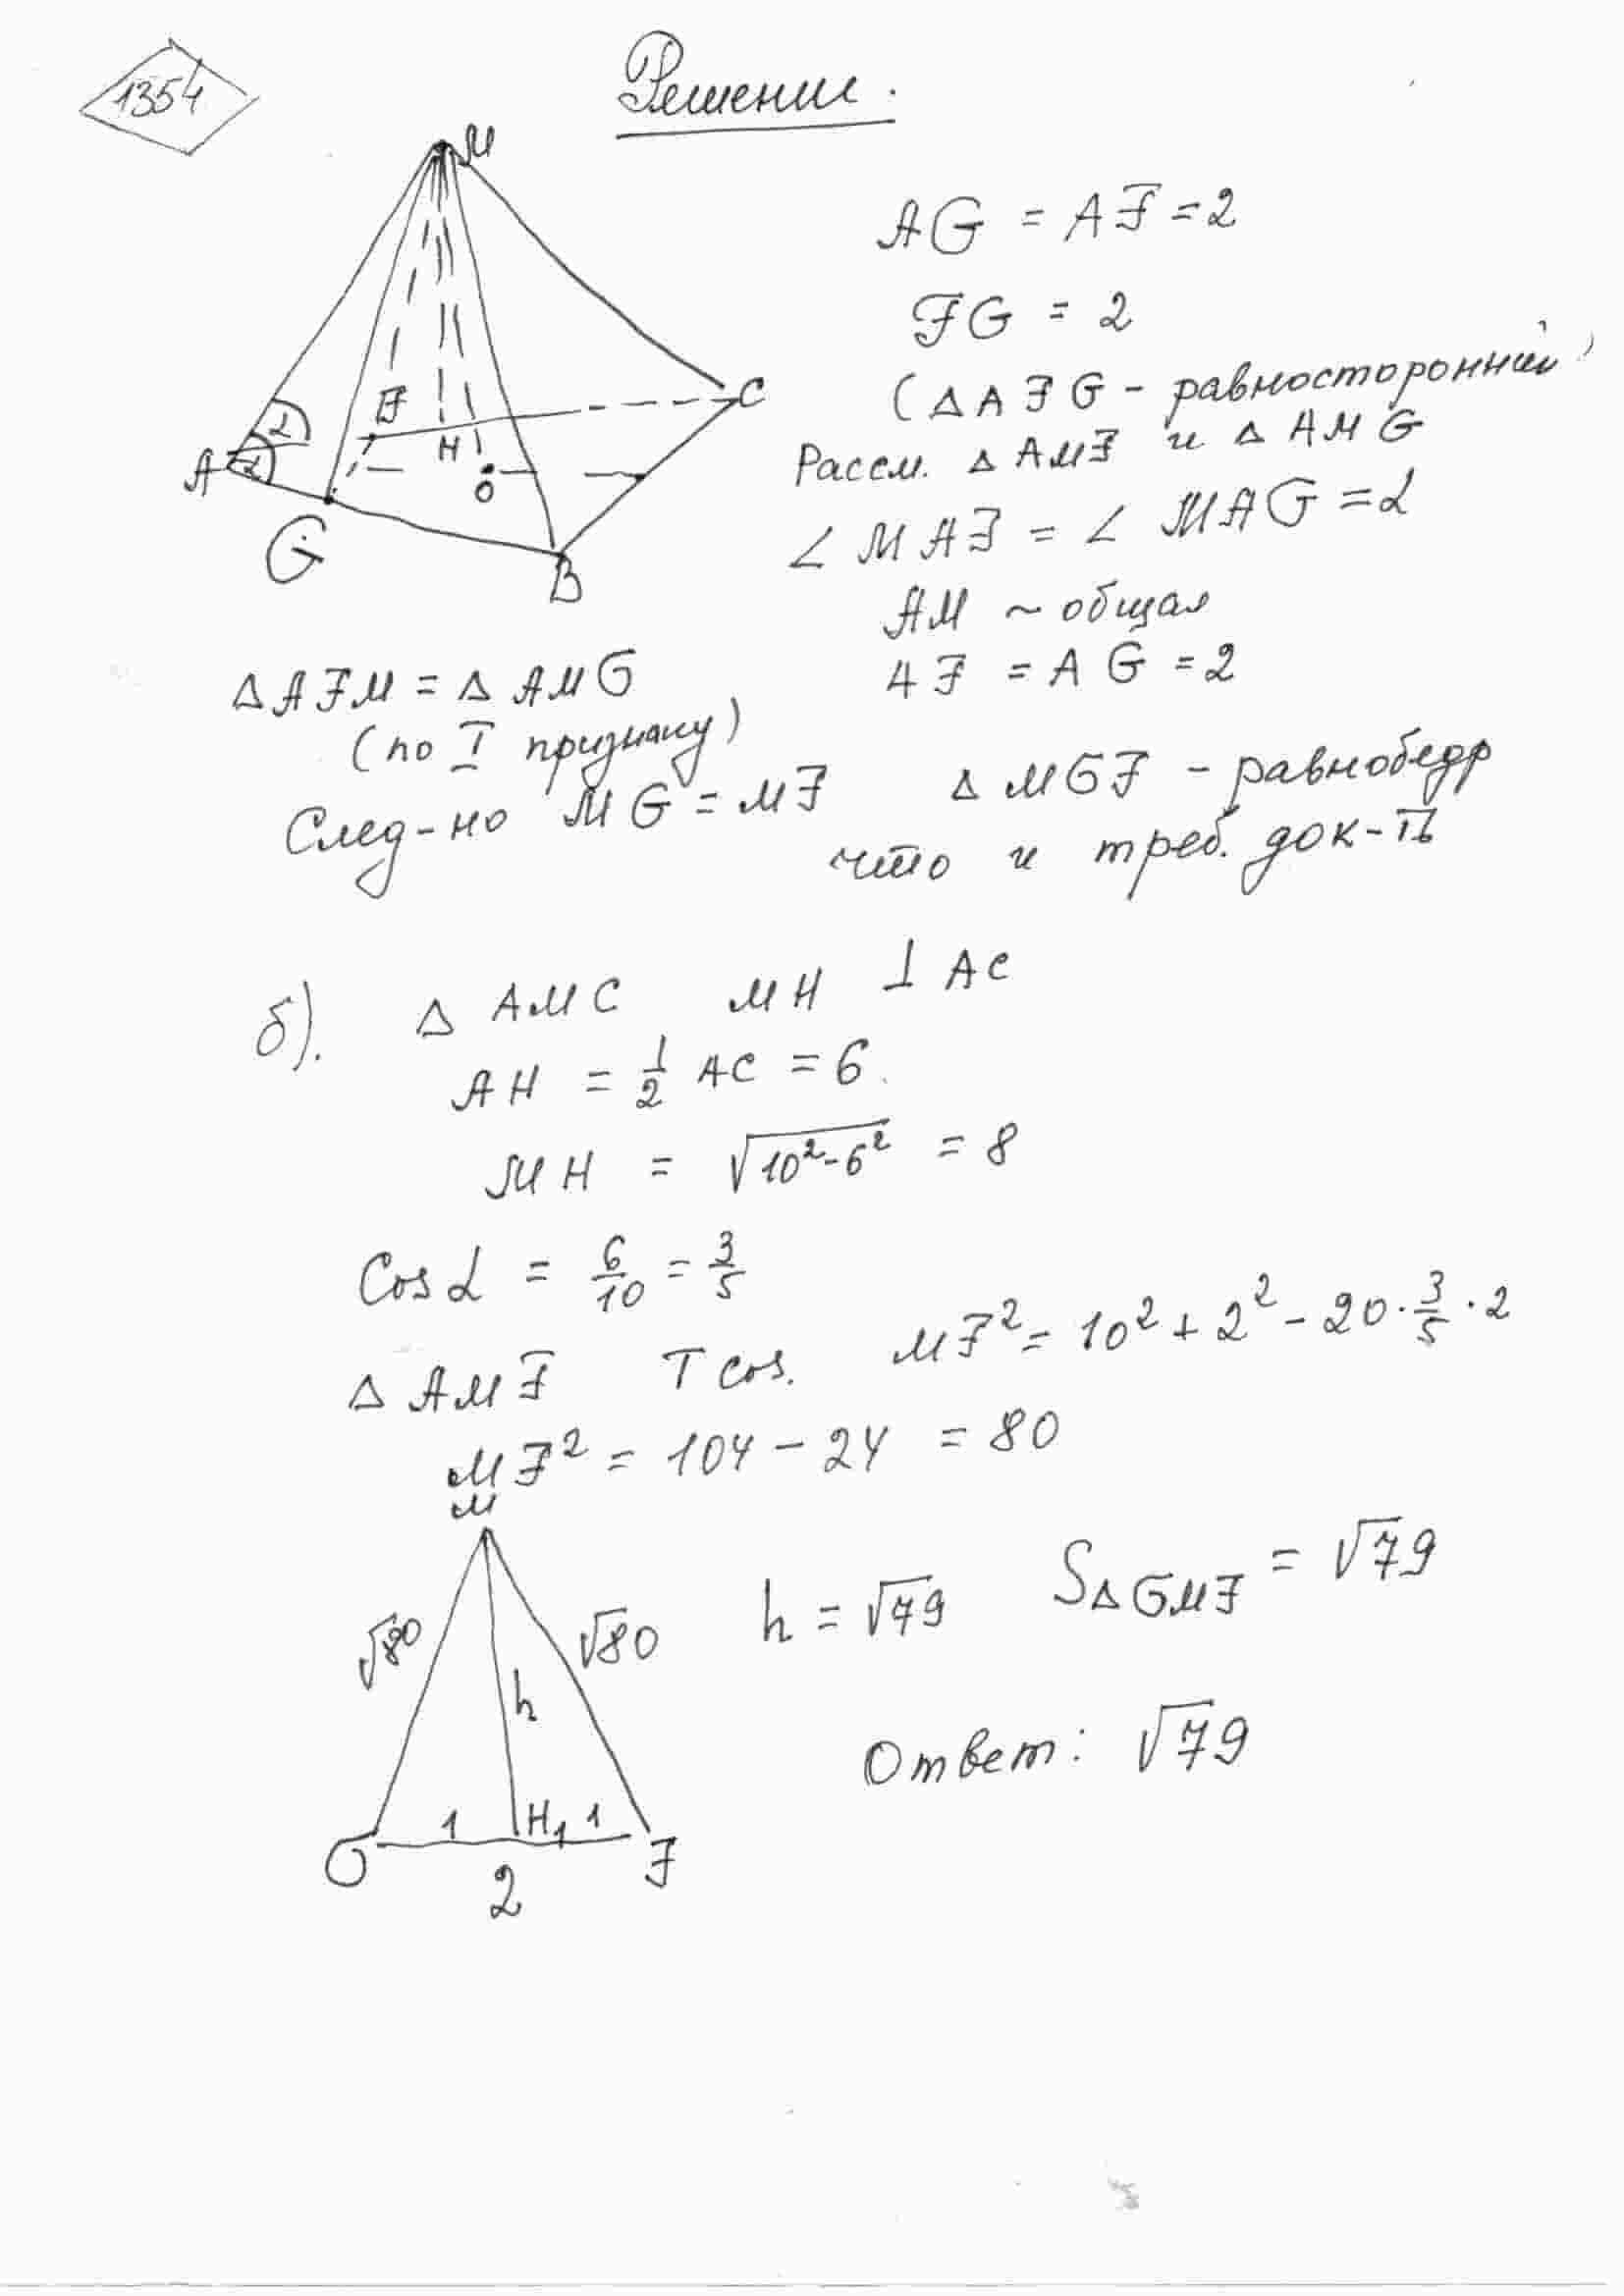 1354
Решение.
M
A
α
α
F
H
O
C
G
B
AG = AF = 2
FG = 2
(△AFG - равносторонний)
Рассм. △AMF и △AMG
∠MAF = ∠MAG = α
AM ~ общая
AF = AG = 2
△AFM = △AMG
(по I признаку)
След-но MG = MF △MGF - равнобедр
что и треб. док-ть
б). △AMC MH ⊥ AC
AH = 1/2 AC = 6.
MH = √(10² - 6²) = 8
Cos α = 6/10 = 3/5
△AMF T cos. MF² = 10² + 2² - 20 · 3/5 · 2
MF² = 104 - 24 = 80
M
√80
√80
h
h = √79 S△GMF = √79
1
H₁
1
G
2
F
Ответ: √79